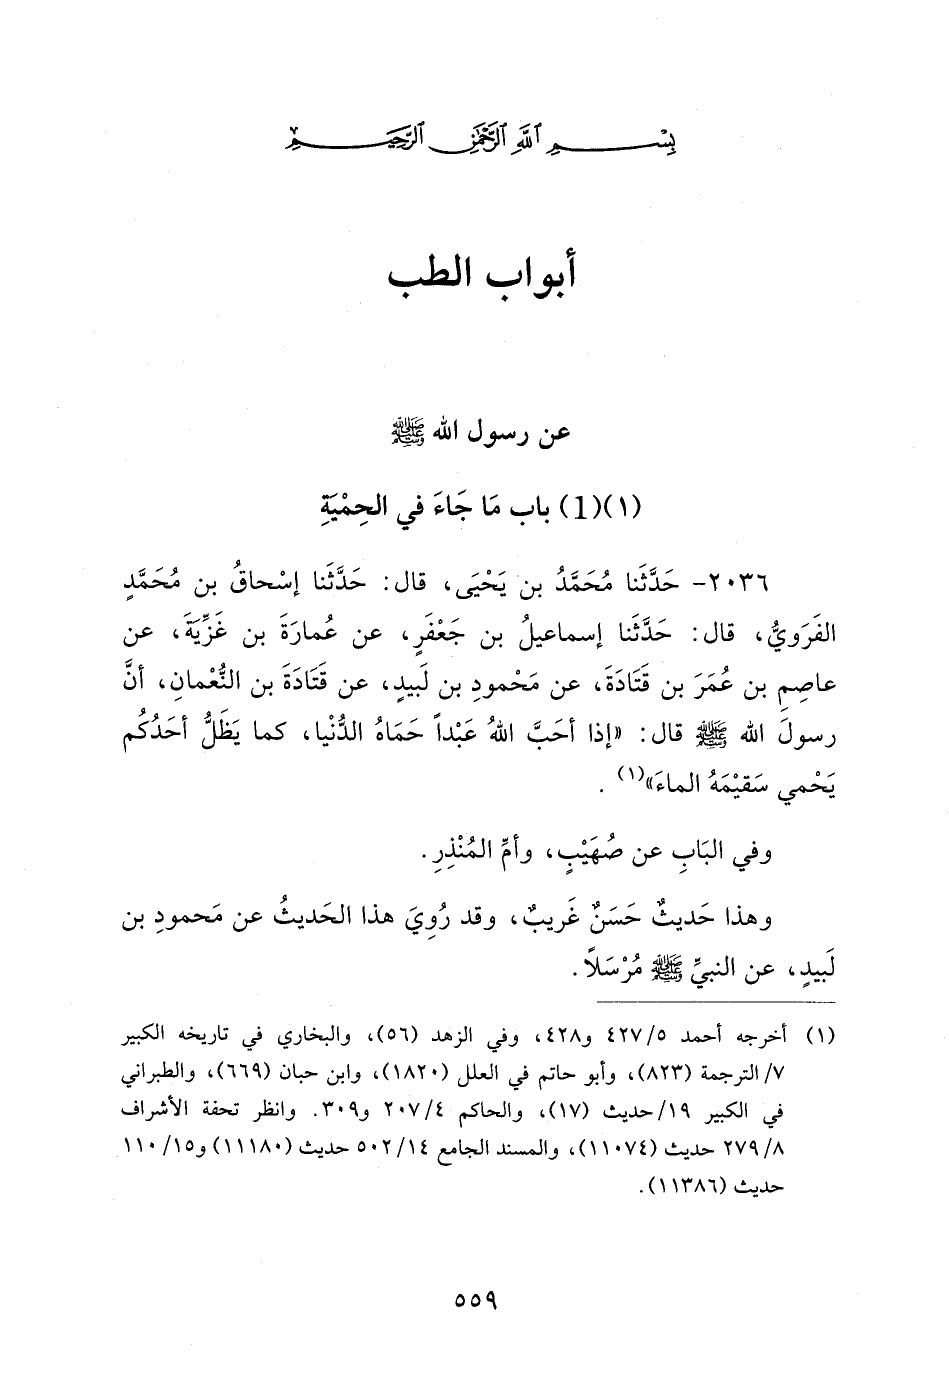 بِسْمِ ٱللَّهِ ٱلرَّحْمَٰنِ ٱلرَّحِيمِ
أبواب الطب
عن رسول الله ﷺ
(١)(1) باب مَا جَاءَ في الحِمْيَةِ
٢٠٣٦- حَدَّثَنا مُحَمَّدُ بن يَحْيَى، قال: حَدَّثَنا إسْحاقُ بن مُحَمَّدٍ
الفَرَوِيُّ، قال: حَدَّثَنا إسماعيلُ بن جَعْفَرٍ، عن عُمارَةَ بن غَزِّيةَ، عن
عاصِمِ بن عُمَرَ بن قَتَادَةَ، عن مَحْمودِ بن لَبيدٍ، عن قَتَادَةَ بن النُّعْمانِ، أنَّ
رسولَ الله ﷺ قال: «إذا أحَبَّ اللهُ عَبْداً حَمَاهُ الدُّنْيا، كما يَظَلُّ أحَدُكُم
يَحْمي سَقيْمَهُ الماءَ»(١).
وفي البَابِ عن صُهَيْبٍ، وأمِّ المُنْذِرِ.
وهذا حَديثٌ حَسَنٌ غَريبٌ، وقد رُوِيَ هذا الحَديثُ عن مَحمودِ بن
لَبيدٍ، عن النبيِّ ﷺ مُرْسَلاً.
(١) أخرجه أحمد ٤٢٧/٥ و٤٢٨، وفي الزهد (٥٦)، والبخاري في تاريخه الكبير
٧/ الترجمة (٨٢٣)، وأبو حاتم في العلل (١٨٢٠)، وابن حبان (٦٦٩)، والطبراني
في الكبير ١٩/ حديث (١٧)، والحاكم ٢٠٧/٤ و٣٠٩. وانظر تحفة الأشراف
٢٧٩/٨ حديث (١١٠٧٤)، والمسند الجامع ٥٠٢/١٤ حديث (١١١٨٠) و١١٠/١٥
حديث (١١٣٨٦).
٥٥٩